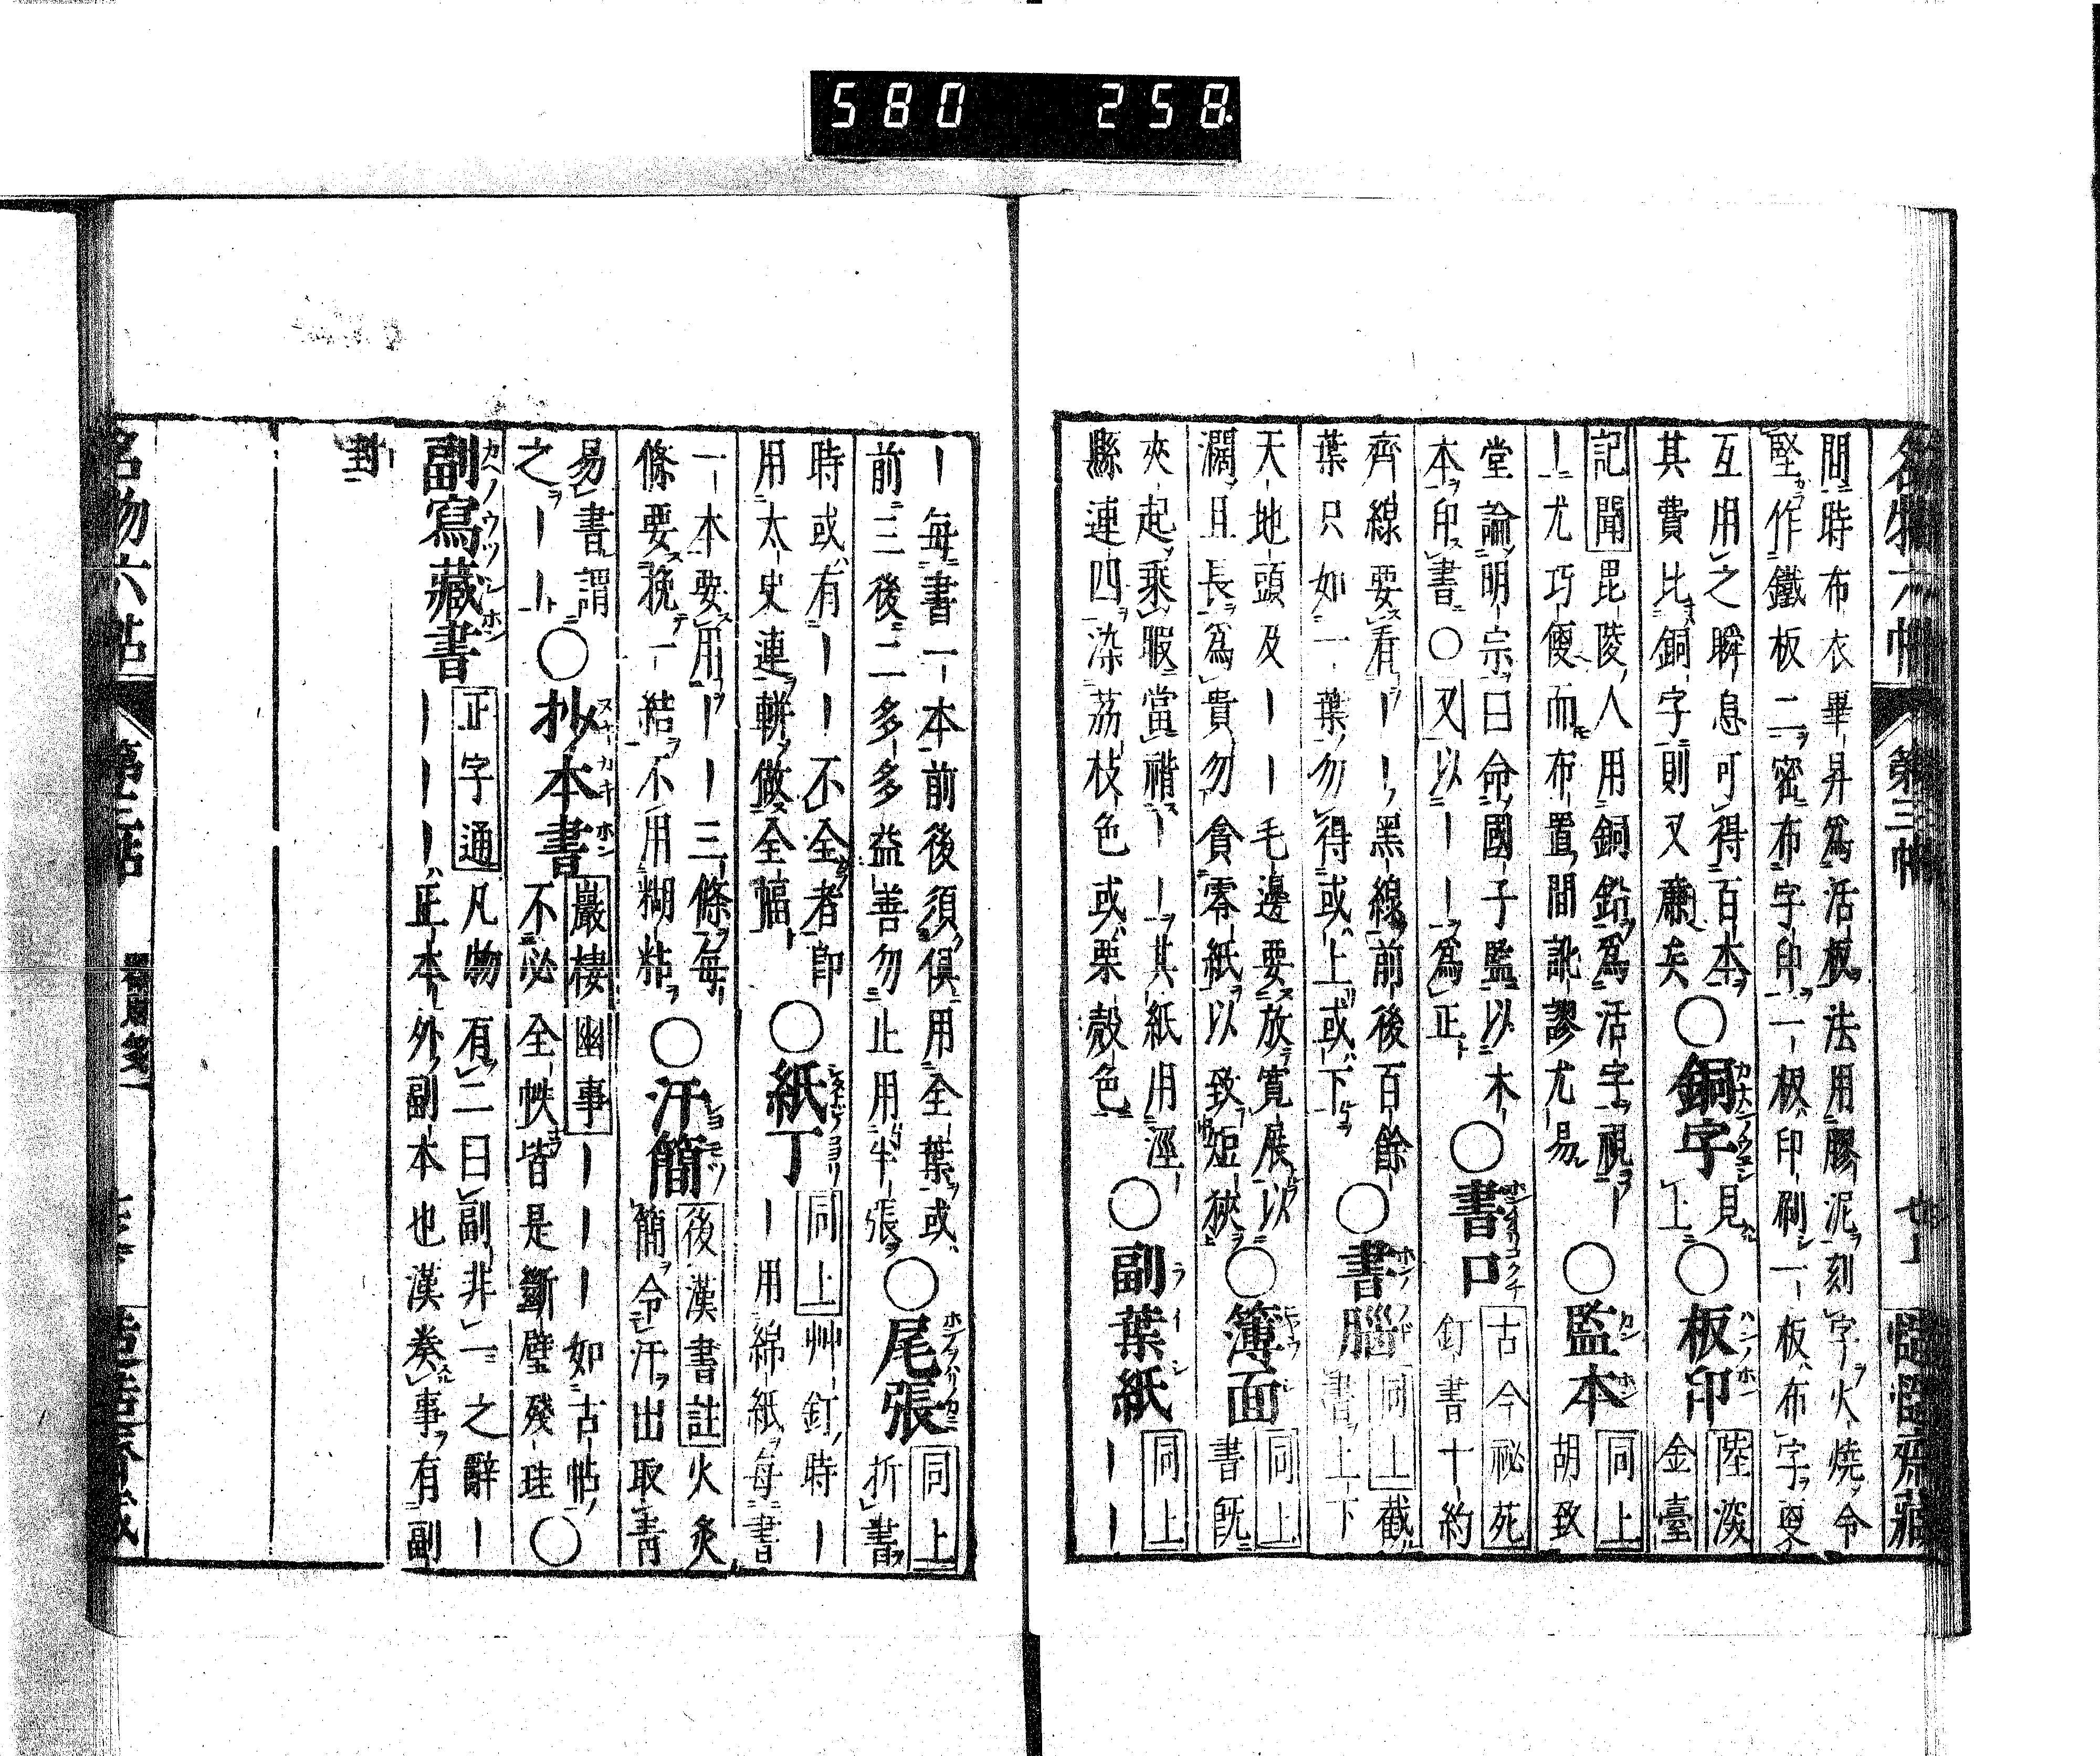 580 258.
名物六帖 第三帖
間時布衣畢昇爲活板法用膠泥刻字火燒令
堅作鐵板二密布字印一板印刷一板布字更
互用之瞬息可得百本
其費比銅字則又廉矣
○銅字 見上
○板印 陸深金臺
記聞毘陵人用銅鉛爲活字視丨
丨尤巧便而布置間訛謬尤易
○監本 同上 胡致
堂論明宗曰命國子監以木
本印書○又以丨丨爲正
○書口 古今祕苑 釘書十約
齊線要看丨丨黑線前後百餘
葉只如一葉勿得或上或下
○書腦 同上 截書上下
天地頭及丨丨毛邊要放寬展以
濶且長爲貴勿貪零紙以致短狹
○簿面 同上 書既
夾起乘暇當褙丨丨其紙用涇
縣連四染荔枝色或栗殼色
○副葉紙 同上 丨丨
丨每書一本前後須俱用全葉或
前三後二多多益善勿止用半張
○尾張 同上 折書
時或有丨丨不全者卽
用太史連輧做全幅
○紙丁 同上 艸釘時丨丨用綿紙每書
一本要用丨丨三條每
條要挽一結不用糊粘
○汗簡 後漢書註 火炙簡令汗出取靑
易書謂
之丨丨
○抄本書 巖棲幽事 丨丨丨如古帖
不必全帙皆是斷璧殘珪○
副寫藏書 正字通 凡物有二曰副非一之辭丨
丨丨丨正本外副本也漢券事有副
封
名物六帖 第三帖 器財箋